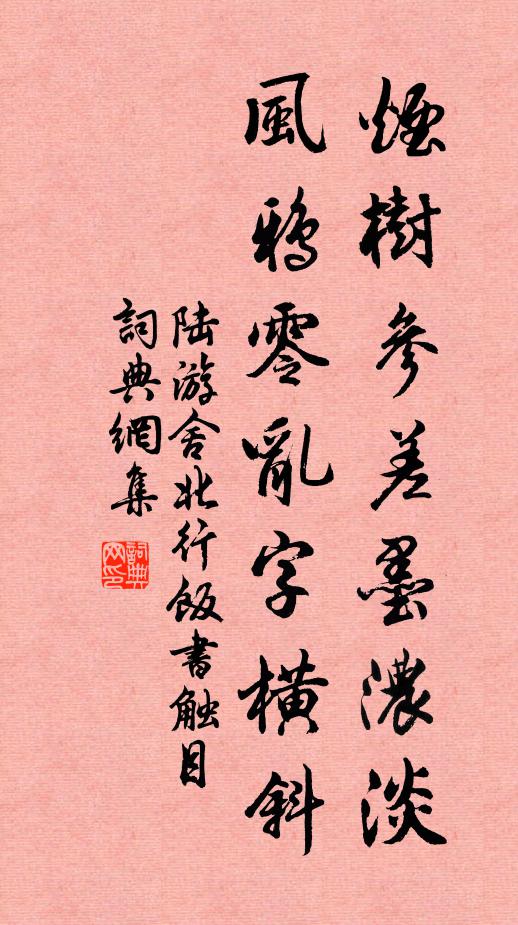 煙樹參差墨濃淡
風鴉零亂字橫斜
陆游舍北行飯書触目
詞典網集
詞典網印